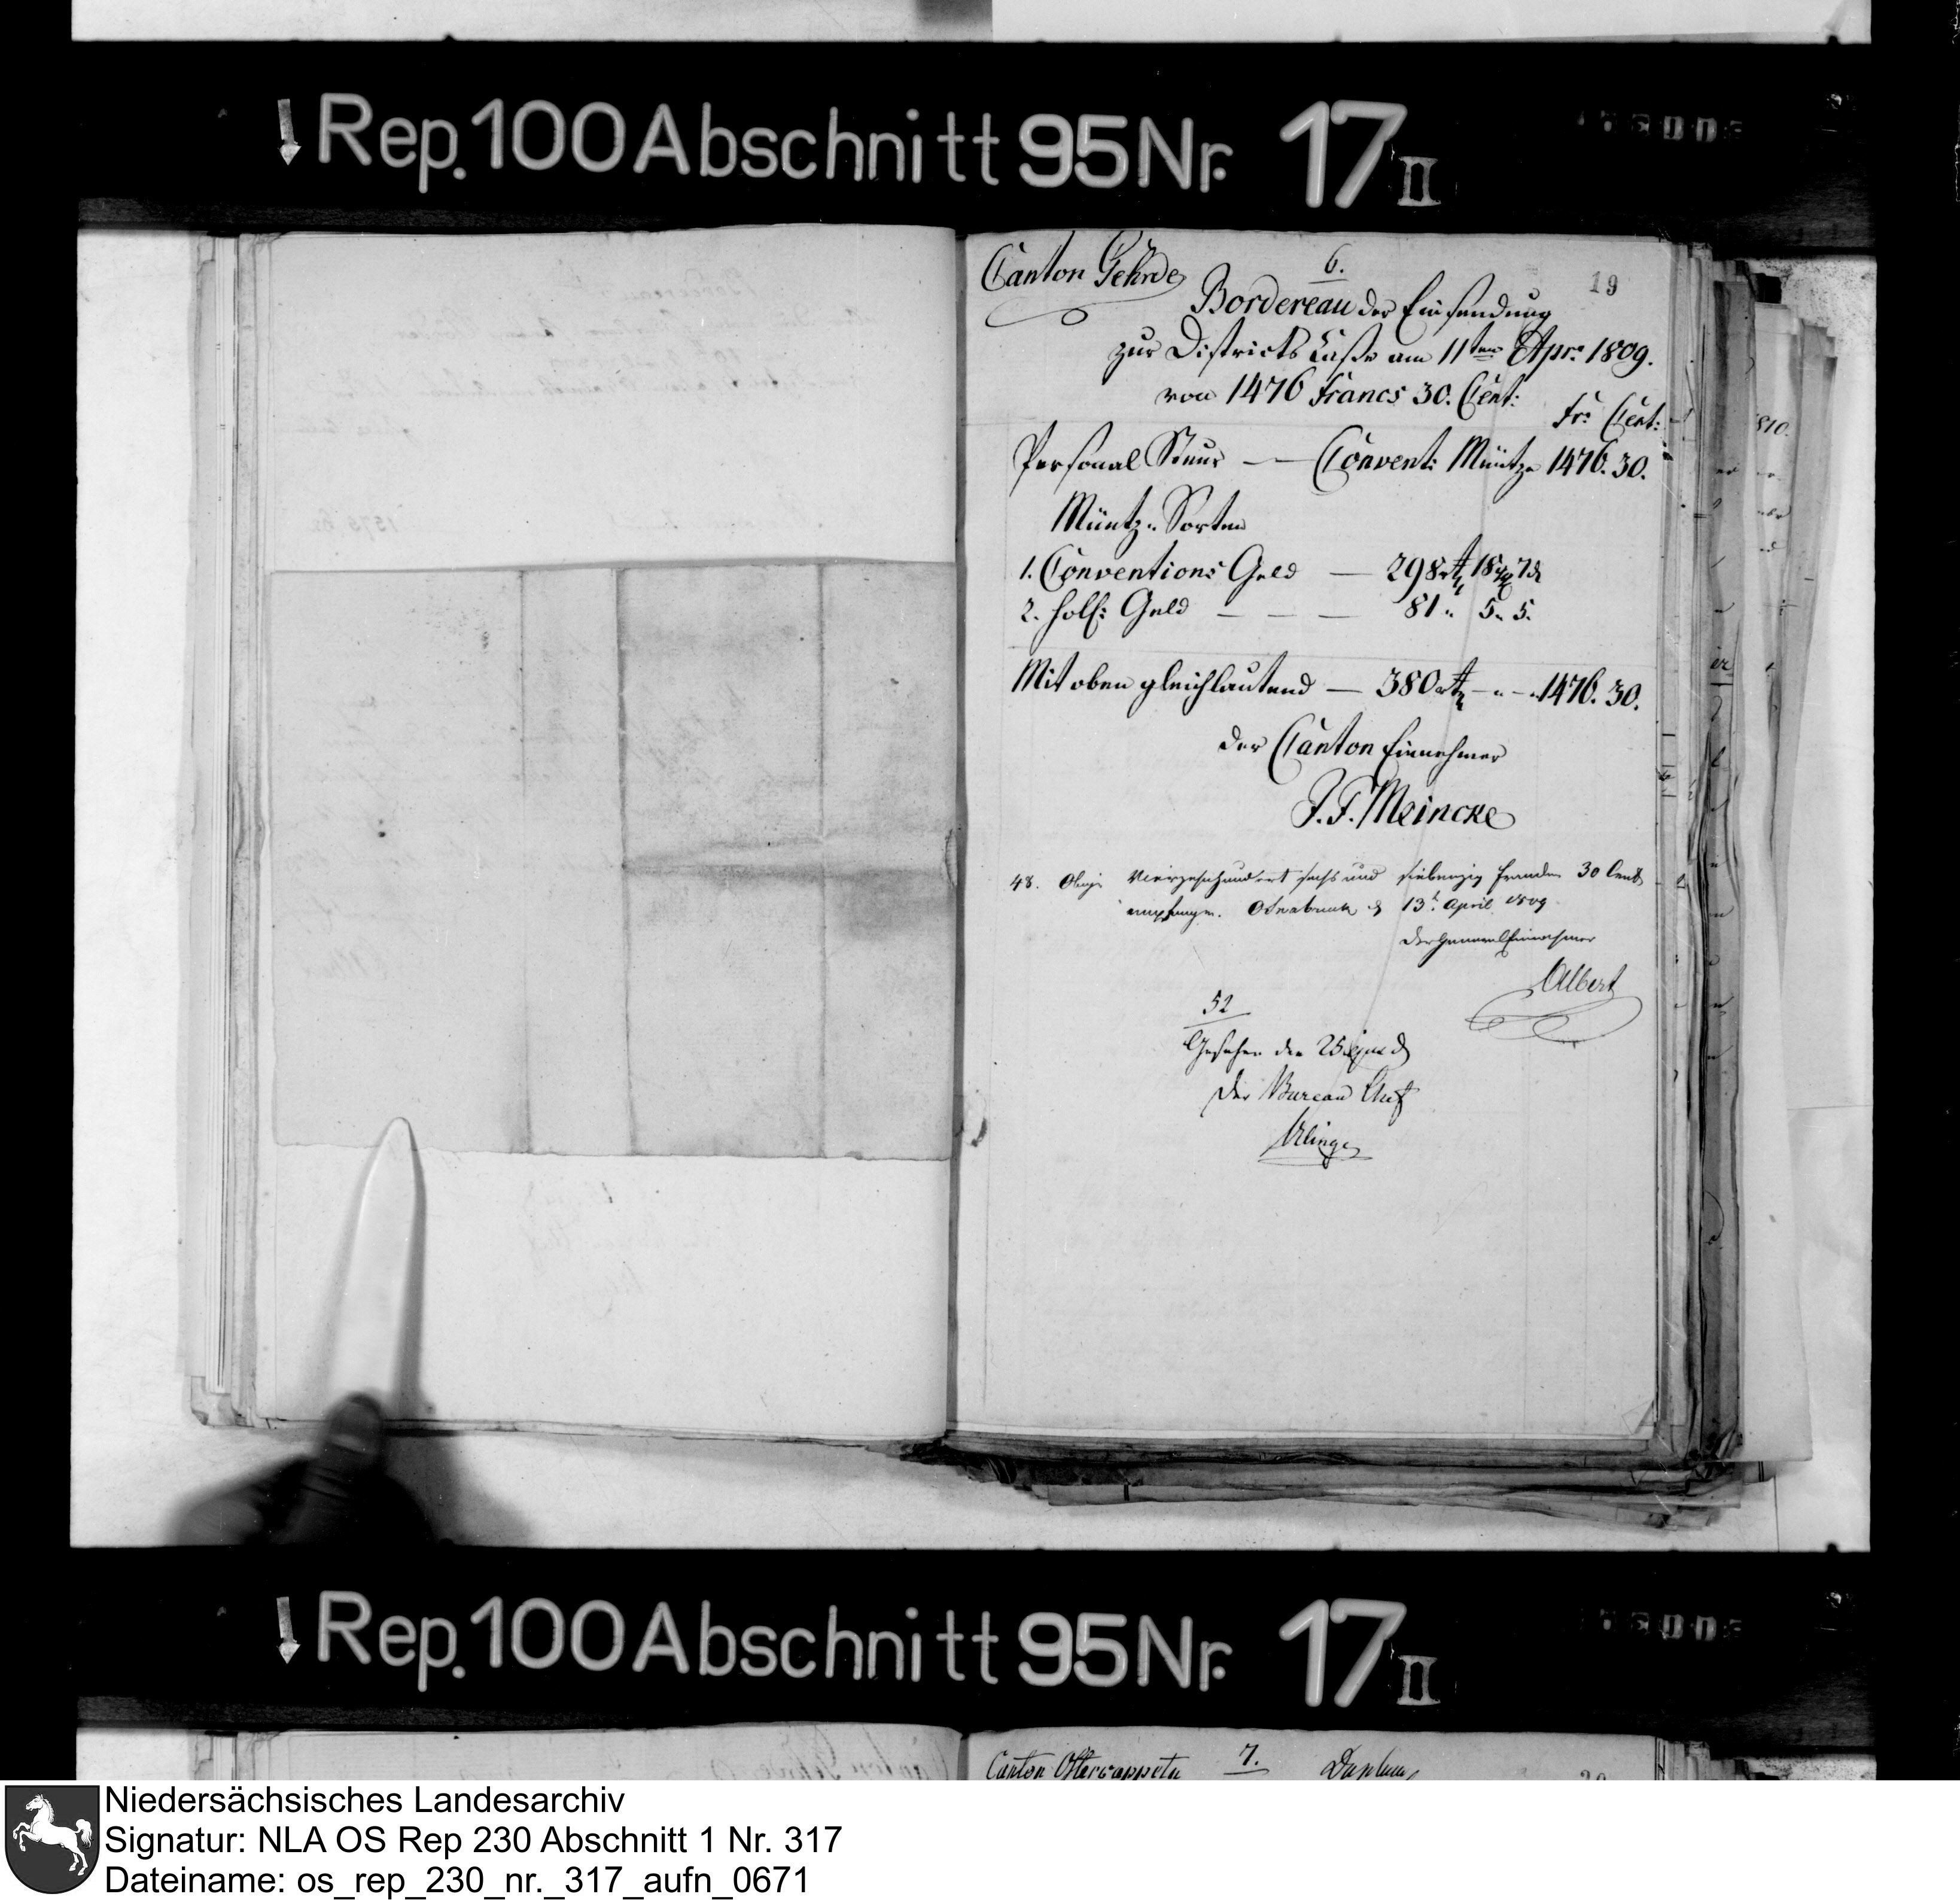 Rep. 100 Abschnitt 95 Nr. 17 II
Canton Gehrde
6.
19
Bordereau der Einsendung
zur Districts Casse am 11ten Apr: 1809.
von 1476 Francs 30. Cent:
Fr: Cent:
Personal Steur — Convent: Müntze 1476. 30.
Müntz-Sorten
1. Conventions Geld — 298 rt 18 7 d
2. holl: Geld — — — 81 " 5 " 5.
Mit oben gleichlautend — 380 rt — " — " 1476. 30.
der Canton Einnehmer
J. F. Meincke
48. Obige Vierzehnhundert sechs und siebenzig Franken 30 Cent
empfangen. Osnabruck d 13t April 1809
Der General Einnehmer
Albert
52
Gesehen den 25 ejusd
Der Bureau Chef
810.
Rep. 100 Abschnitt 95 Nr. 17 II
Canton Ostercappeln 7.
Niedersächsisches Landesarchiv
Signatur: NLA OS Rep 230 Abschnitt 1 Nr. 317
Dateiname: os_rep_230_nr._317_aufn_0671